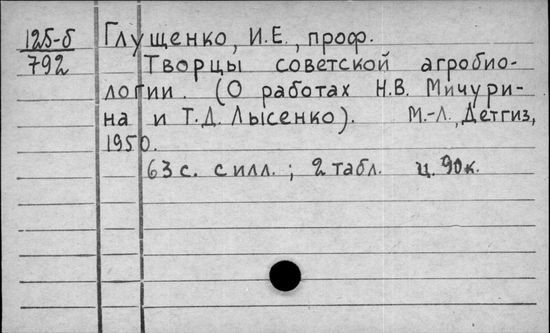 125-б Глущенко, И.Е., проф.
792 Творцы советской агробио-
логии. (О работах Н.В. Мичури-
на и Т.Д. Лысенко). М.-Л., Детгиз,
1950.
63 с. с илл.; 2 табл. ц. 90к.